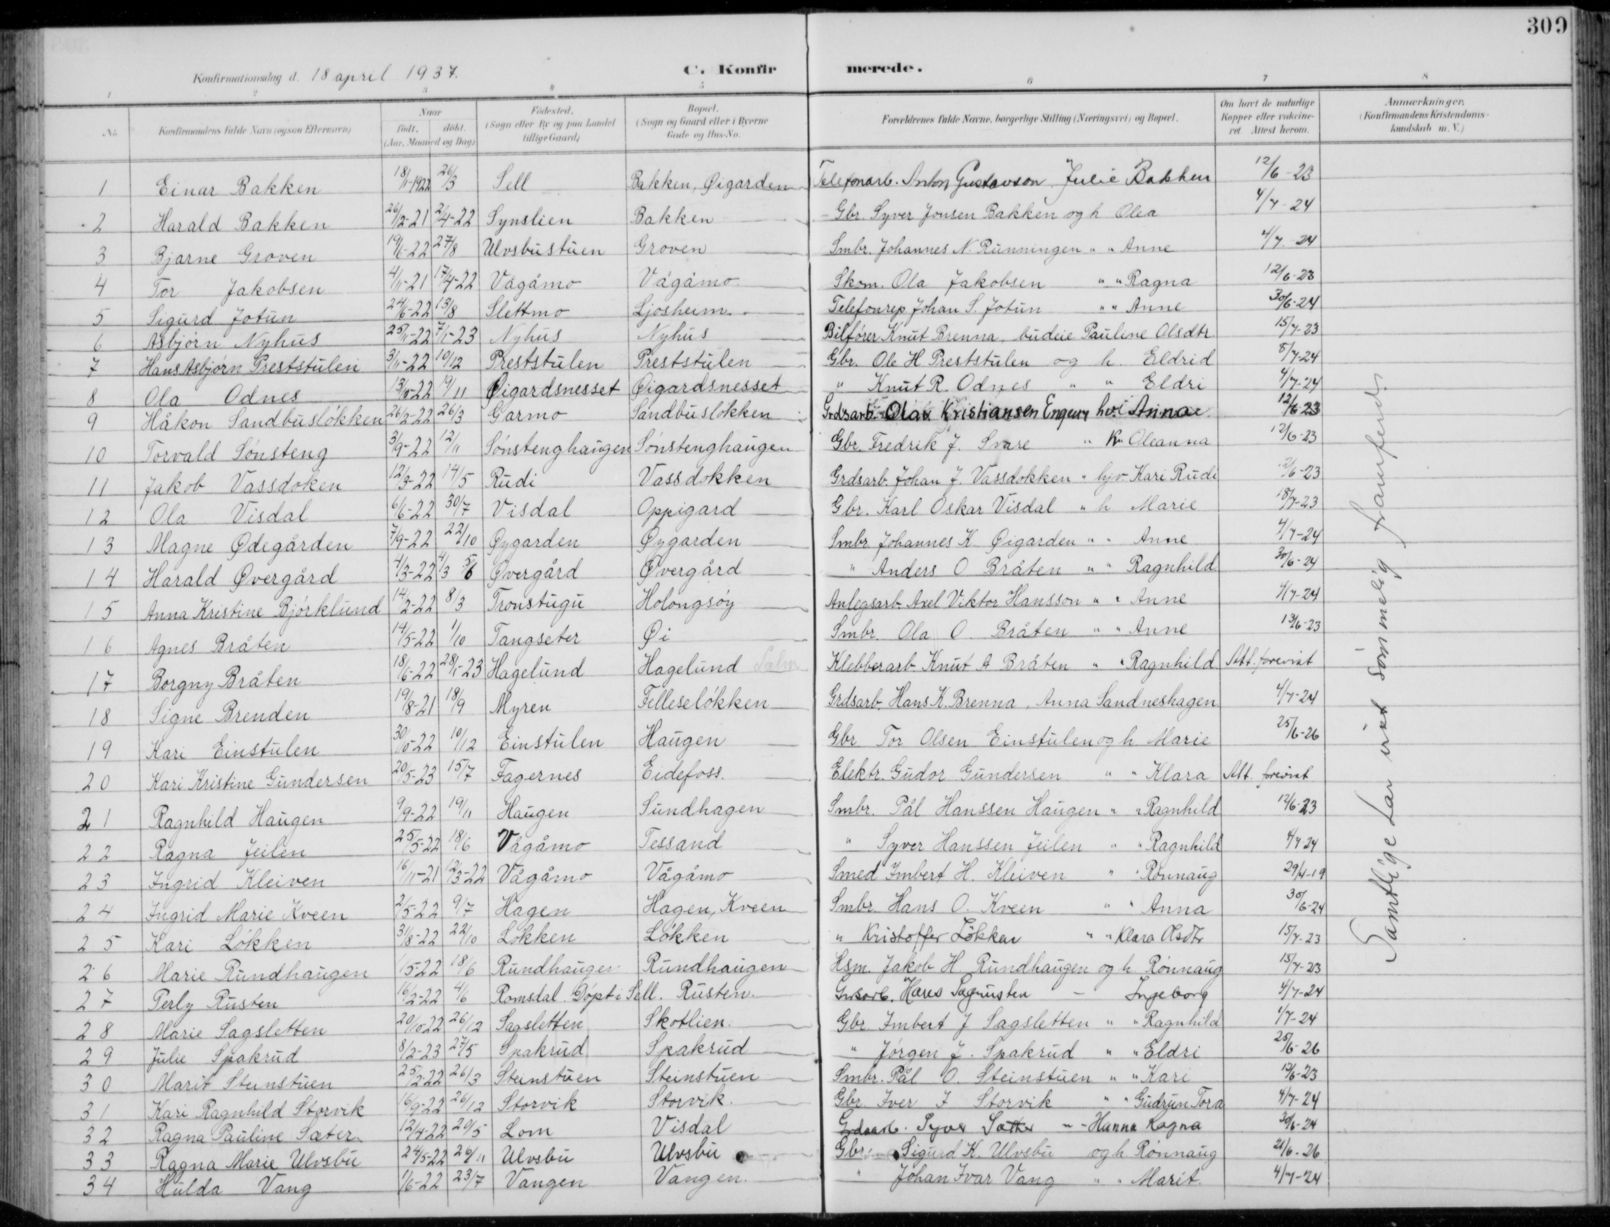 309
Konfirmationsdag d. 18 april 1937.
C. Konfirmerede.
1 2 3 4 5 6 7 8
No. Konfirmandens fulde Navn (ogsaa Efternavn) Naar født. døbt. (Aar, Maaned og Dag) Fødested. (Sogn eller By og paa Landet tillige Gaard) Bopæl. (Sogn og Gaard eller i Byerne Gade og Hus-No. Forældrenes fulde Navne, borgerlige Stilling (Næringsvei) og Bopæl. Om havt de naturlige Kopper eller vaccineret. Attest herom. Anmærkninger. (Konfirmandens Kristendomskundskab m. V.)
1 Einar Bakken 18/11-1922 26/3 Sell Bakken, Øigarden Telefonarb. Anton Gustavson Julie Bakken 12/6-23
2 Harald Bakken 26/2-21 2/4-22 Synslien Bakken Gbr. Syver Jonsen Bakken og h Olea 4/7-24
3 Bjarne Groven 19/6-22 27/8 Ulvsbustuen Groven Smbr. Johannes N. Runningen " " Anne 4/7-24
4 Tor Jakobsen 4/11-21 17/4-22 Vågåmo Vågåmo Skom. Ola Jakobsen " " Ragna 12/6-23
5 Sigurd Jotun 24/6-22 13/8 Slettmo Ljosheim Telefonrep Johan S. Jotun " " Anne 30/6-24
6 Asbjørn Nyhus 25/11-22 7/1-23 Nyhus Nyhus Bilfører Knut Brenna, budeie Pauline Olsdtr 15/7-23
7 Hans Asbjørn Preststulen 3/11-22 10/12 Preststulen Preststulen Gbr. Ole H Preststulen og h. Eldrid 8/7-24
8 Ola Odnes 13/8-22 19/11 Øigardsnesset Øigardsnesset " Knut R. Odnes " " Eldri 4/7-24
9 Håkon Sandbusløkken 26/2-22 26/3 Garmo Sandbusløkken Grdsarb. Olav Kristiansen Engen Anna 12/6 23
10 Torvald Sønsteng 3/9-22 12/11 Sønstenghaugen Sønstenghaugen Gbr. Fredrik J. Svare " K. Oleanna 12/6-23
11 Jakob Vassdoken 12/3-22 14/5 Rudi Vassdokken Grdsarb. Johan J. Vassdokken " Kari Rudi 12/6-23
12 Ola Visdal 6/6-22 30/7 Visdal Oppigard Gbr. Karl Oskar Visdal " h Marie 18/7-23
13 Magne Ødegården 7/9-22 22/10 Øygarden Øygarden Smbr Johannes K Øigarden " " Anne 4/7-24
14 Harald Øvergård 4/3-22 5/6 Øvergård Øvergård " Anders O Bråten " " Ragnhild 30/6-24
15 Anna Kristine Bjørklund 14/2-22 8/3 Tronstugu Holongsøy Anlegsarb. Axel Viktor Hansson " " Anne 4/7-24
16 Agnes Bråten 14/5-22 1/10 Tangseter Øi Smbr. Ola O. Bråten " " Anne 13/6-23
17 Borgny Bråten 18/6-22 28/1-23 Hagelund Hagelund Klebberarb Knut A Bråten " " Ragnhild Att. forevist
18 Signe Brenden 19/8-21 18/9 Myren Felleseløkken Grdsarb Hans K. Brenna, Anna Sandneshagen 4/7-24
19 Kari Einstulen 30/10-22 10/12 Einstulen Haugen Gbr Tor Olsen Einstulen og h Marie 25/6-26
20 Kari Kristine Gundersen 20/5-23 15/7 Fagernes Eidefoss. Elektr. Gudor Gundersen " " Klara Att. forevist
21 Ragnhild Haugen 9/9-22 19/11 Haugen Sundhagen Smbr. Pål Hanssen Haugen " " Ragnhild 12/6-23
22 Ragna Jeilen 25/5-22 18/6 Vågåmo Tessand " Syver Hanssen Jeilen " " Ragnhild 4/7 24
23 Ingrid Kleiven 16/11-21 12/3-22 Vågåmo Vågåmo Smed Imbert H. Kleiven " " Rønnaug 29/4-19
24 Ingrid Marie Kveen 2/5-22 9/7 Hagen Hagen, Kveen Smbr. Hans O. Kveen " " Anna 30/6-24
25 Kari Løkken 31/8-22 22/10 Løkken Løkken " Kristoffer Løkken " " Klara Olsdtr 15/7-23
26 Marie Rundhaugen 1/5-22 18/6 Rundhaugen Rundhaugen Hsm. Jakob H Rundhaugen og h Rønnaug 15/7-23
27 Perly Rusten 16/2-22 4/6 Romsdal Døpt i Sell. Rusten. Ingeborg 4/7-24
28 Marie Sagsletten 20/10 22 26/12 Sagsletten Skotlien. Gbr. Imbert J Sagsletten " " Ragnhild 4/7-24
29 Julie Spakrud 8/2-23 27/5 Spakrud Spakrud " Jørgen J. Spakrud " " Eldri 25/6-26
30 Marit Steinstuen 25/2 22 26/3 Steinstuen Steinstuen Smbr. Pål O. Steinstuen " " Kari 12/6-23
31 Kari Ragnhild Storvik 6/9-22 26/12 Storvik Storvik. Gbr Iver I Storvik " " Gudrun Tora 4/7-24
32 Ragna Pauline Sæter 12/4-22 20/5 Lom Visdal Grdsarb. Syver Sæter - - Hanna Ragna 30/6-24
33 Ragna Marie Ulvsbu 24/5-22 26/11 Ulvsbu Ulvsbu Gbr. Sigurd K. Ulvsbu og h Rønnaug 21/6-26
34 Hulda Vang 1/6-22 23/7 Vangen Vangen. " Johan Ivar Vang " " Marit. 4/7-24
Samtlige har vist sømmelig framferd.